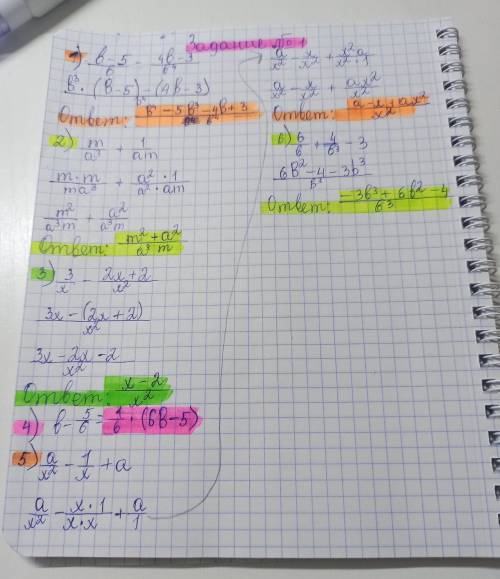 Задание №1
1) (b-5)/b - (4b-3)/b⁴
b³·(b-5)-(4b-3)/b⁴
Ответ: b⁴-5b³-4b+3/b⁴
2) m/a³ + 1/am
m·m/ma³ + a²·1/a²·am
m²/a³m + a²/a³m
Ответ: m²+a²/a³m
3) 3/x - 2x+2/x²
3x-(2x+2)/x²
3x-2x-2/x²
Ответ: x-2/x²
4) b-5/6=1/6·(6b-5)
5) a/x² - 1/x + a
a/x² - x·1/x·x + a/1
a/x² - x/x² + x²a/x²·1
a/x² - x/x² + ax²/x²
Ответ: a-x+ax²/x²
6) 6/b + 4/b³ - 3
6b²-4-3b³/b³
Ответ: -3b³+6b²-4/b³